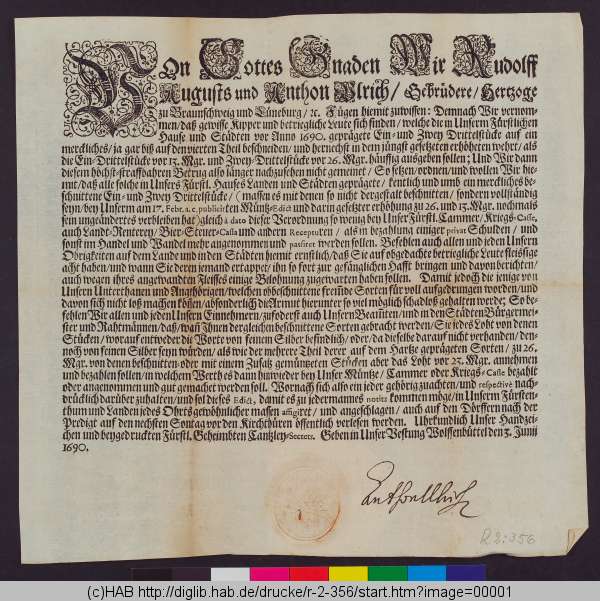 VOn Gottes Gnaden Wir Rudolff
Augusts und Anthon Vlrich / Gebrüdere / Hertzoge
zu Braunschweig und Lüneburg / ꝛc. Fügen hiemit zuwissen: Demnach Wir vernom-
men / daß gewisse Kipper und betriegliche Leute sich finden / welche die in Unserm Fürstlichen
Hause und Städten vor Anno 1690. geprägete Ein- und Zwey Drittelstücke auf ein
merckliches / ja gar biß auf den vierten Theil beschneiden / und hernechst in dem jüngst gesetzten erhöheten wehrt / als
die Ein-Drittelstücke vor 13. Mgr. und Zwey-Drittelstücke vor 26. Mgr. häuffig ausgeben sollen; Und Wir dann
diesem höchst-straffbahren Betrug also länger nachzusehen nicht gemeinet / So setzen / ordnen / und wollen Wir hie-
mit / daß alle solche in Unsers Fürstl. Hauses Landen und Städten geprägete / kentlich und umb ein merckliches be-
schnittene Ein- und Zwey Drittelstücke / (massen es mit denen so nicht dergestalt beschnitten / sondern vollständig
seyn / bey Unserm am 17. Febr. a. c. publicirten Müntz-Edict und darin gesetzter erhöhung zu 26. und 13. Mgr. nochmals
sein ungeändertes verbleiben hat) gleich à dato dieser Verordnung so wenig bey Unser Fürstl. Cammer / Kriegs-Casse,
auch Landt-Renterey / Bier-Steuer-Cassa und andern Recepturen / als in bezahlung einiger privat Schulden / und
sonst im Handel und Wandel mehr angenommen und passiret werden sollen. Befehlen auch allen und jeden Unsern
Obrigkeiten auf dem Lande und in den Städten hiemit ernstlich / daß Sie auf obgedachte betriegliche Leute fleissige
acht haben / und wann Sie deren jemand ertappet / ihn so fort zur gefänglichen Hafft bringen und davon berichten /
auch wegen ihres angewandten Fleisses einige Belohnung zugewarten haben sollen. Damit jedoch die jenige von
Unsern Unterthanen und Angehörigen / welchen obbeschnittene frembde Sorten für voll aufgedrungen worden / und
davon sich nicht loß machen können / absonderlich die Armut hierunter so viel möglich schadloß gehalten werde; So be-
fehlen Wir allen und jeden Unsern Einnehmern / zuforderst auch Unsern Beamten / und in den Städten Bürgermei-
ster und Rahtmännen / daß / wann Ihnen dergleichen beschnittene Sorten gebracht werden / Sie jedes Loht von denen
Stücken / worauf entweder die Worte von feinem Silber befindlich / oder / da dieselbe darauf nicht verhanden / den-
noch von feinen Silber seyn würden / als wie der mehrere Theil derer auf dem Hartze geprägeten Sorten / zu 26.
Mgr. von denen beschnitten oder mit einem Zusatz gemüntzten Stücken aber das Loht vor 23. Mgr. annehmen
und bezahlen sollen / in welchem Werth es dann hinwieder bey Unser Müntz / Cammer oder Kriegs-Casse bezahlt
oder angenommen und gut gemachet werden soll. Wornach sich also ein jeder gehörig zuachten / und respectivè nach-
drücklich darüber zuhalten / und sol dieses Edict, damit es zu jedermannes notitz kommen möge / in Unserm Fürsten-
thum und Landen jedes Ohrts gewöhnlicher massen affigiret / und angeschlagen / auch auf den Dörffern nach der
Predigt auf den nechsten Sontag vor den Kirchthüren öffentlich verlesen werden. Uhrkundlich Unser Handzei-
chen und beygedruckten Fürstl. Geheimbten Cantzley-Secrets. Geben in Unser Vestung Wolffenbüttel den 3. Junii
1690.
R 2:356
(c)HAB http://diglib.hab.de/drucke/r-2-356/start.htm?image=00001